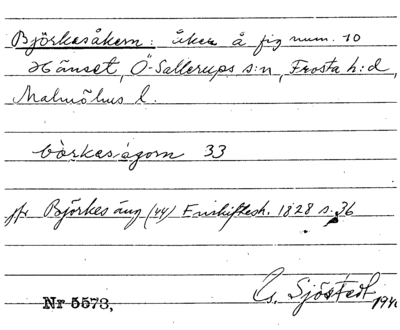 Björkesåkern: åker å fig num. 10
Hänset, Ö-Sallerups s:n, Frosta h:d,
Malmöhus l.
bòrkesågorn 33
jfr Björkes äng (44) Enskifteskh. 1828 s. 36
G. Sjöstedt
Nr 5573, 194